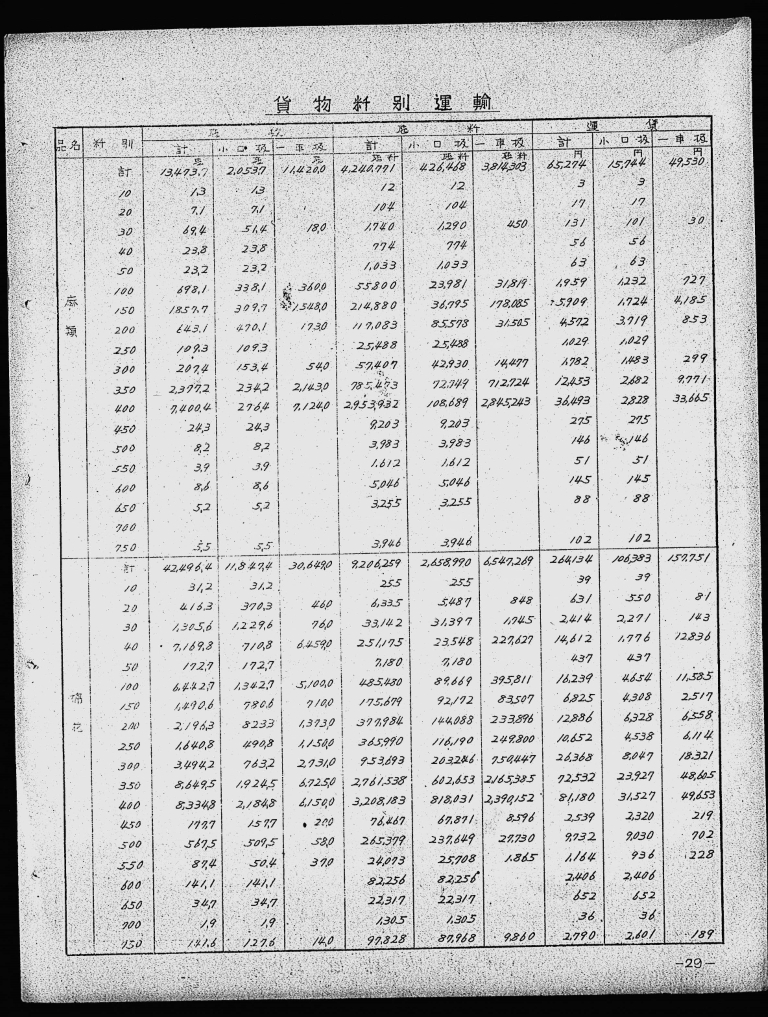 貨物粁別運輸
品名 粁別 屯数 屯粁 運賃
計 小口扱 一車扱 計 小口扱 一車扱 計 小口扱 一車扱
屯 屯 屯 屯粁 屯粁 屯粁 円 円 円
麻類
計 13,473.7 2,053.7 11,420.0 4,240,771 426,468 3,814,303 65,274 15,744 49,530
10 1.3 1.3 12 12 3 3
20 7.1 7.1 104 104 17 17
30 69.4 51.4 18.0 1,740 1,290 450 131 101 30
40 23.8 23.8 774 774 56 56
50 23.2 23.2 1,033 1,033 63 63
100 698.1 338.1 360.0 55800 23,981 31,819 1,959 1,232 727
150 1857.7 309.7 1,548.0 214,880 36,795 178,085 5,909 1,724 4,185
200 643.1 470.1 173.0 117,083 85,578 31,505 4,572 3,719 853
250 109.3 109.3 25,488 25,488 1,029 1,029
300 207.4 153.4 54.0 57,407 42,930 14,477 1,782 1,483 299
350 2,377.2 234.2 2,143.0 785,473 72,749 712,724 12,453 2,682 9,771
400 7,400.4 276.4 7,124.0 2,953,932 108,689 2,845,243 36,493 2,828 33,665
450 24.3 24.3 9,203 9,203 275 275
500 8.2 8.2 3,983 3,983 146 146
550 3.9 3.9 1,612 1,612 51 51
600 8.6 8.6 5,046 5,046 145 145
650 5.2 5.2 3,255 3,255 88 88
700
750 5.5 5.5 3,946 3,946 102 102
計 42,496.4 11,847.4 30,649.0 9,206,259 2,658,990 6,547,269 264,134 106,383 157,751
10 31.2 31.2 255 255 39 39
20 416.3 370.3 46.0 6,335 5,487 848 631 550 81
30 1,305.6 1,229.6 76.0 33,142 31,397 1,745 2,414 2,271 143
40 7,169.8 710.8 6,459.0 251,175 23,548 227,627 14,612 1,776 12836
50 172.7 172.7 7,180 7,180 437 437
100 6,442.7 1,342.7 5,100.0 485,480 89,669 395,811 16,239 4,654 11,585
150 1,490.6 780.6 710.0 175,679 92,172 83,507 6,825 4,308 2,517
200 2,196.3 823.3 1,373.0 377,984 144,088 233,896 12,886 6,328 6,558
250 1,640.8 490.8 1,150.0 365,990 116,190 249,800 10,652 4,538 6,114
300 3,494.2 763.2 2,731.0 953,693 203,246 750,447 26,368 8,047 18,321
350 8,649.5 1,924.5 6,725.0 2,761,538 602,653 2,165,385 72,532 23,927 48,605
400 8,334.8 2,184.8 6,150.0 3,208,183 818,031 2,390,152 81,180 31,527 49,653
450 177.7 157.7 20.0 76,467 67,871 8,596 2,539 2,320 219
500 567.5 509.5 58.0 265,379 237,649 27,730 9,732 9,030 702
550 87.4 50.4 37.0 24,073 25,708 1,865 1,164 936 228
600 141.1 141.1 82,256 82,256 2,406 2,406
650 34.7 34.7 22,317 22,317 652 652
700 1.9 1.9 1,305 1,305 36 36
150 141.6 127.6 14.0 97,828 87,968 9,860 2,790 2,601 189
-29-